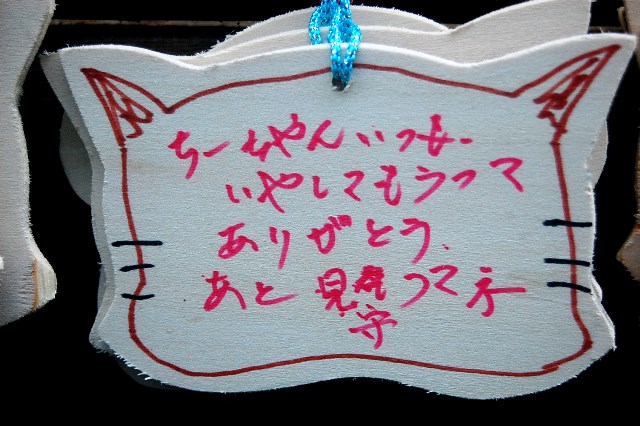 ちーちゃんいつも
いやしてもらって
ありがとう、
あと見守ってネ